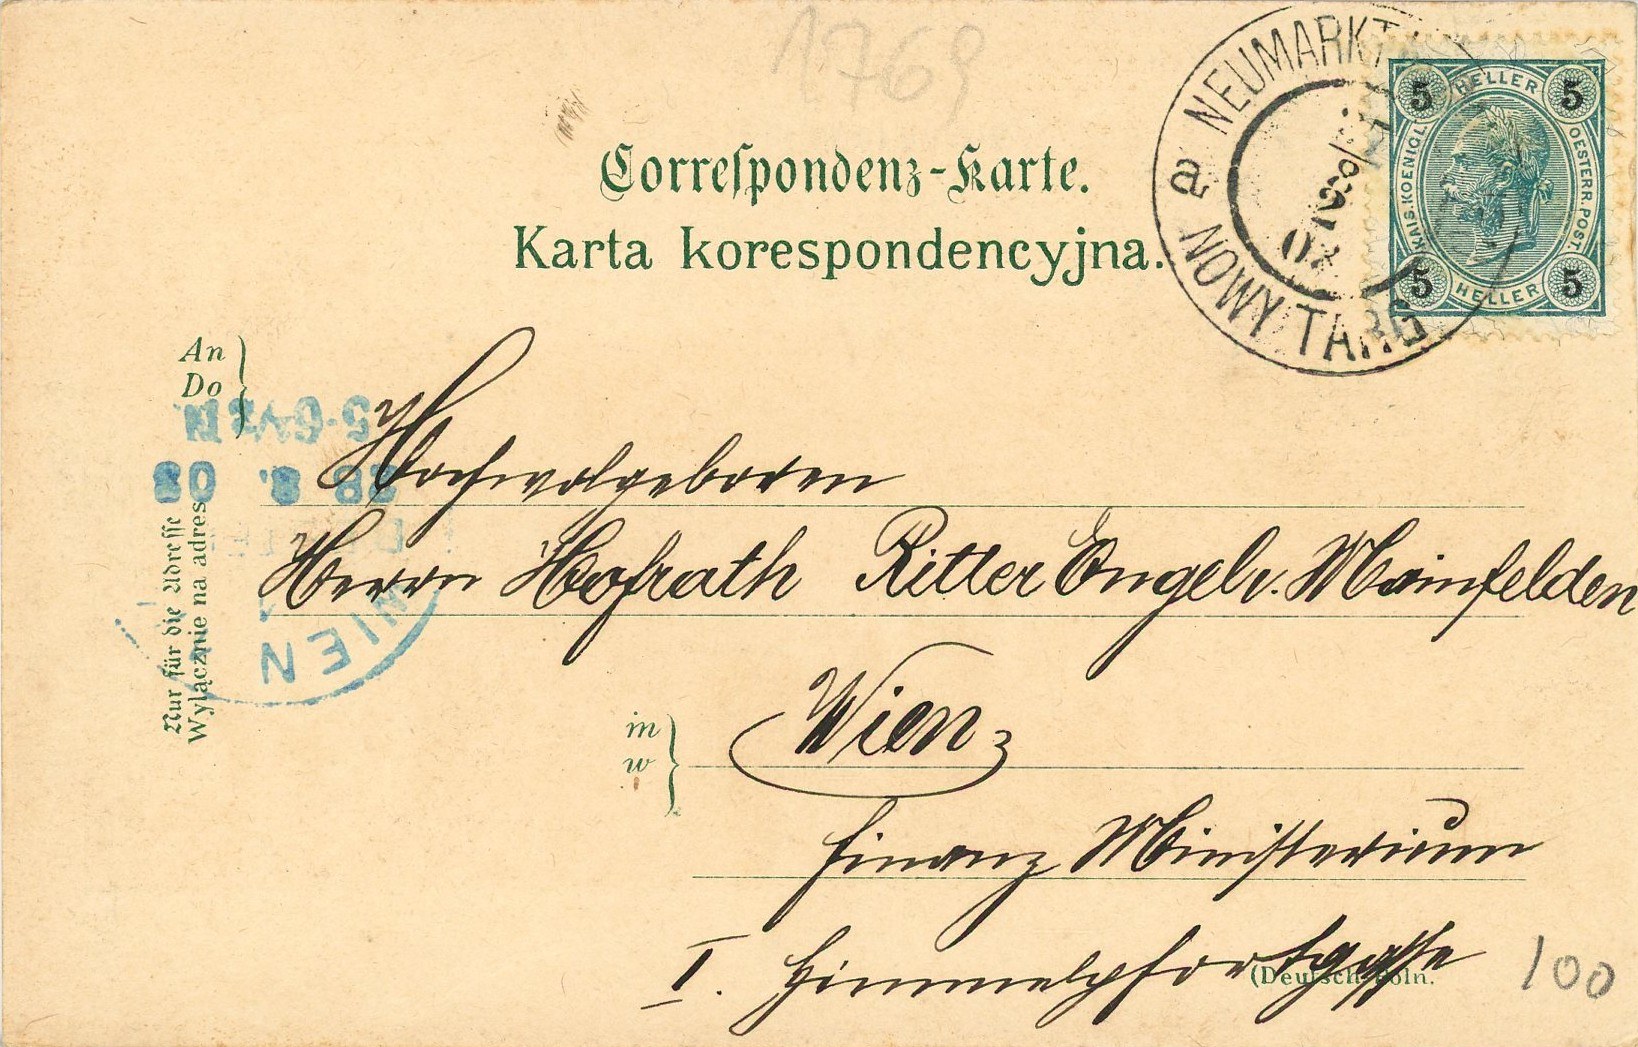 1769
Correspondenz-Karte.
Karta korespondencyjna.
NEUMARKT
a NOWY TARG
02
HELLER
5 5
KAIS. KOENIGL.
OESTERR. POST.
5 5
HELLER
An
Do
Hochwolgeboren
Herrn Hofrath Ritter Engel v. Mainfelden
Nur für die Adresse
Wyłącznie na adres
WIEN
in
w
Wien
Finanz Ministerium
I. Himmelpfortgasse
(Deutsch-Poln.
100